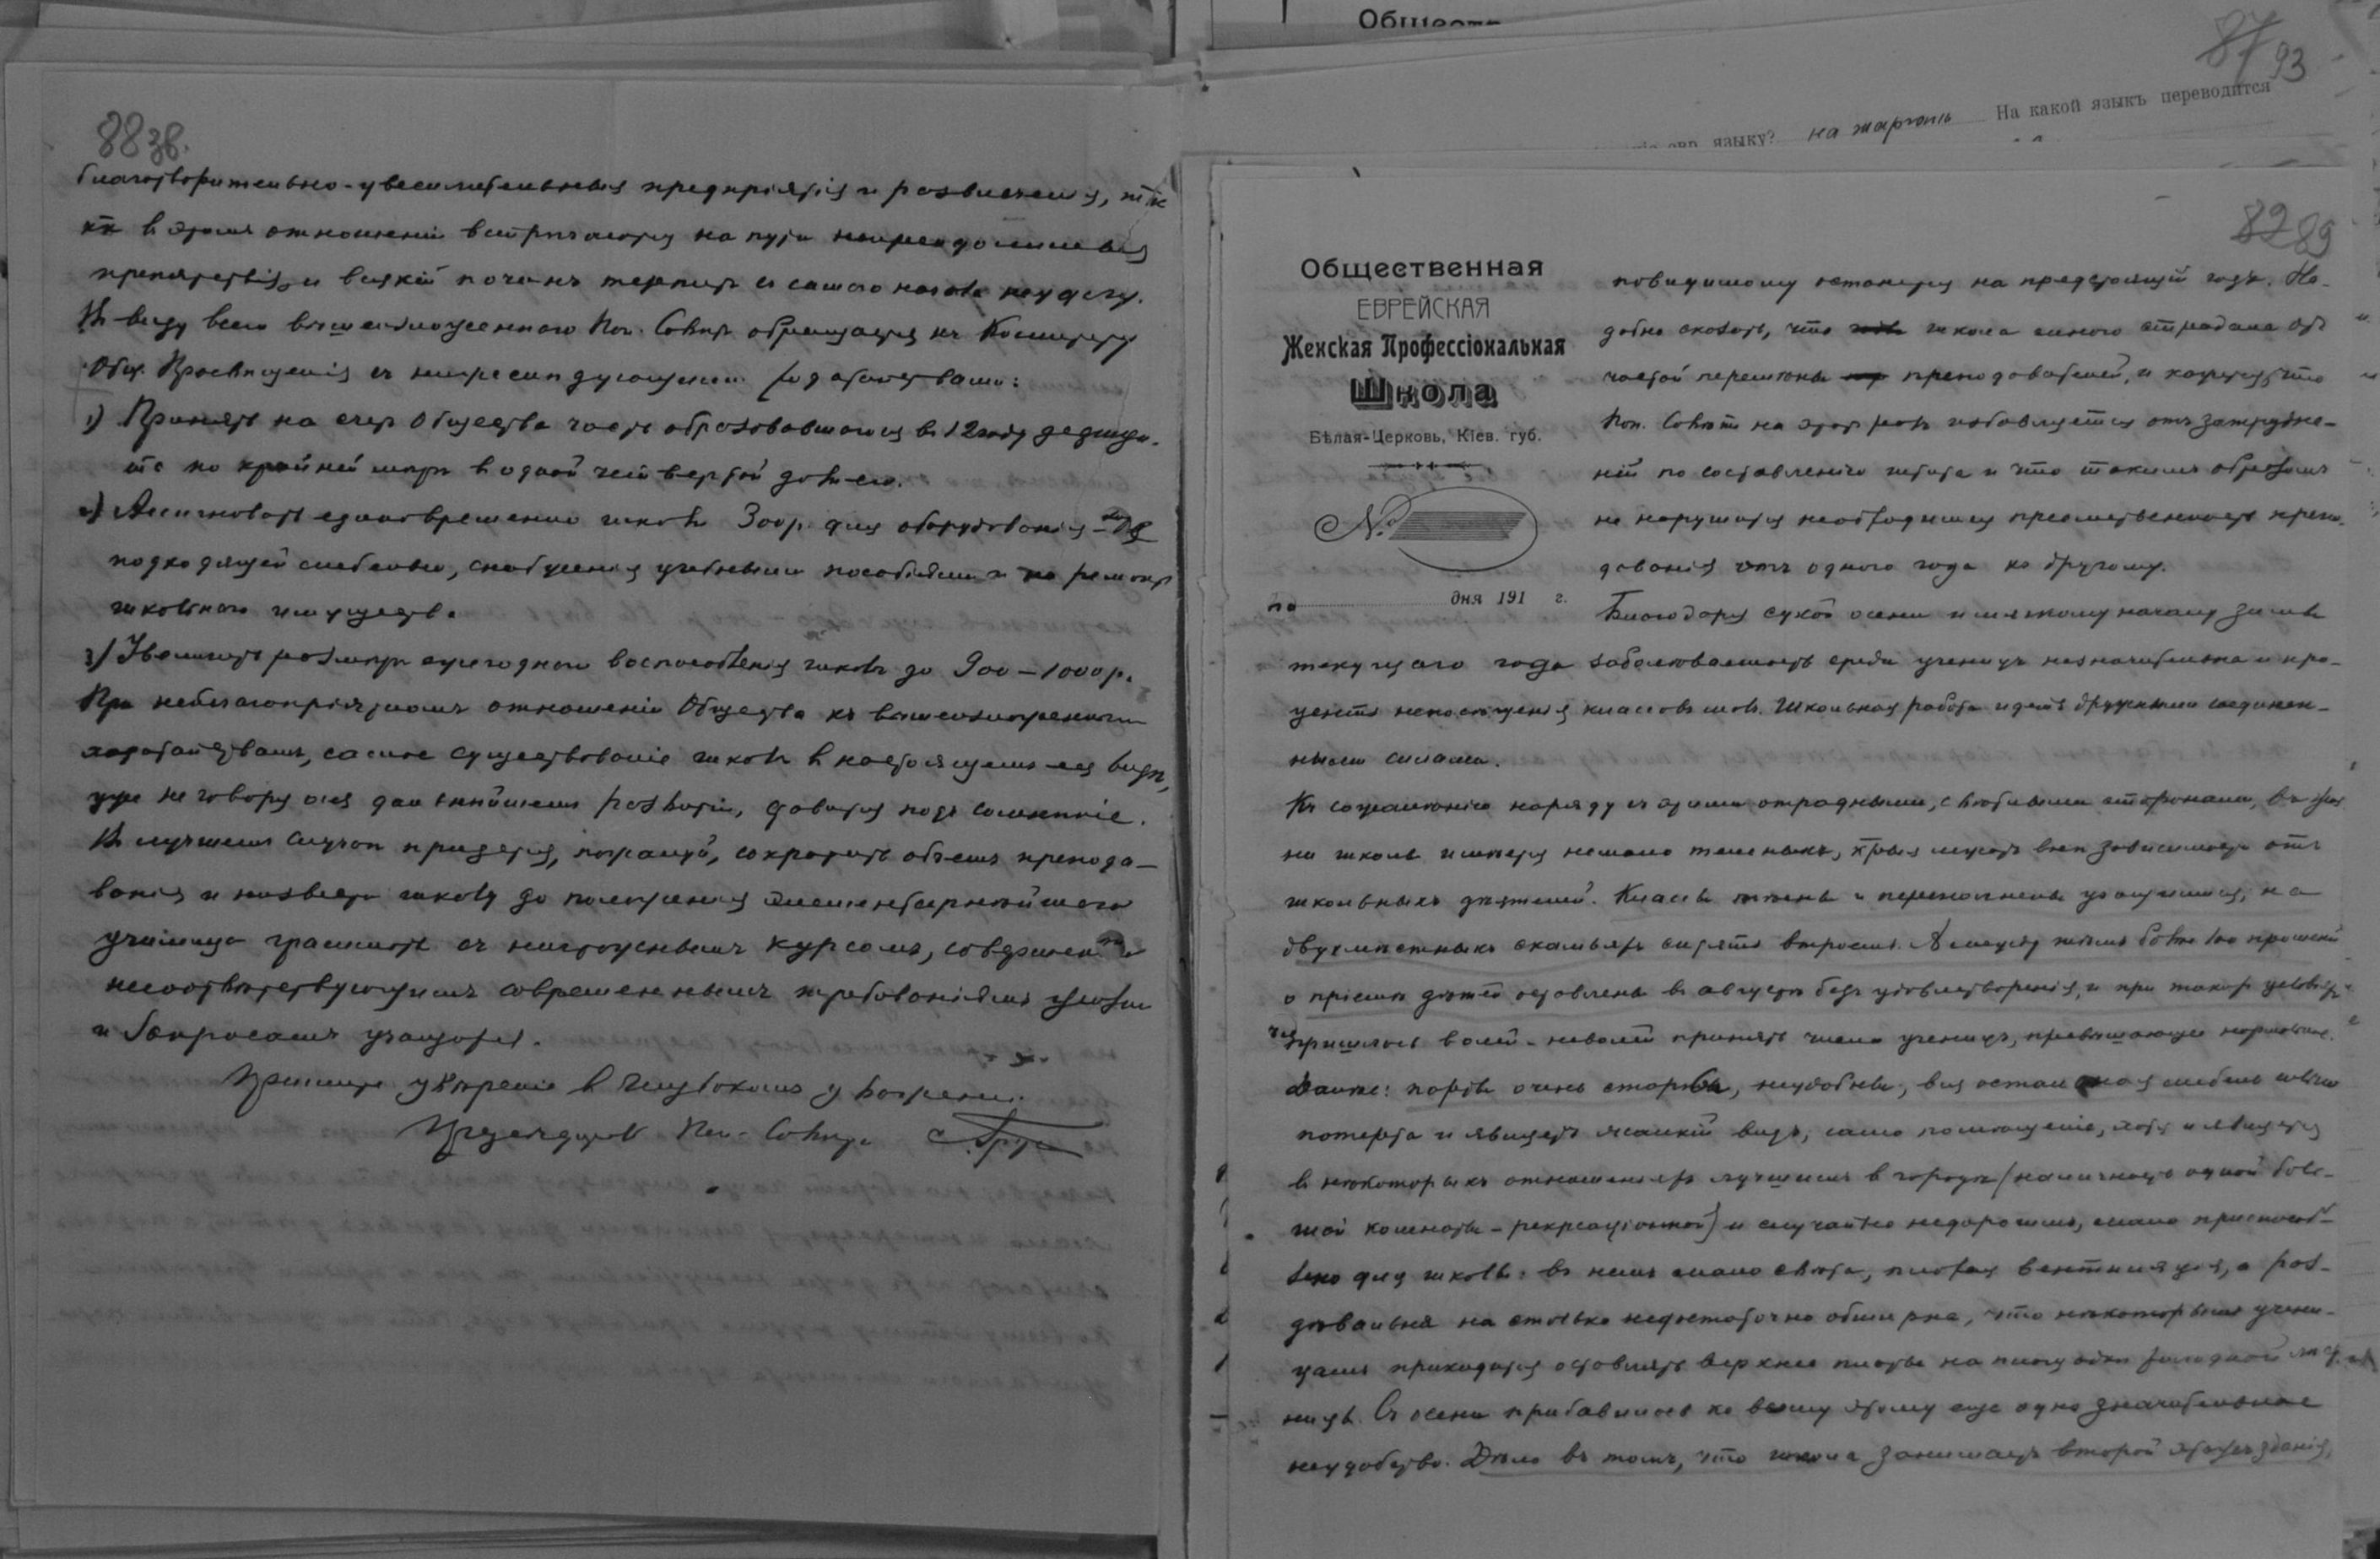 88 зв.
благотворительно-увеселительныя предпріятія и развлеченія, т.к.
въ этомъ отношеніи встрѣчаются на пути непреодолимыя
препятствія и всякій починъ терпитъ съ самаго начала неудачу.
Въ виду всего вышеизложеннаго Поп. Совѣтъ обращается къ Комитету
Общ. Просвѣщенія съ нижеслѣдующими ходатайствами:
1) Принять на счетъ Общества часть образовавшагося въ 12 году дефици-
та по крайней мѣрѣ въ одной четвертой долѣ его.
2) Ассигновать единовременно школѣ 300 р. для оборудованія ея
подходящей мебелью, снабженія учебными пособіями и на ремонтъ
школьнаго имущества.
3) Увеличить размѣръ ежегоднаго воспособленія школѣ до 900 – 1000 р.
При неблагопріятномъ отношеніи Общества къ вышеизложеннымъ
ходатайствамъ, самое существованіе школы въ настоящемъ ея видѣ,
уже не говоря о ея дальнѣйшемъ развитіи, ставится подъ сомнѣніе.
Въ лучшемъ случаѣ придется, пожалуй, сократить объемъ препода-
ванія и низвести школу до положенія элементарнѣйшаго
училища грамоты съ ничтожнымъ курсомъ, совершенно
несоотвѣтствующимъ современнымъ требованіямъ жизни
и запросамъ учащихся.
Примите увѣреніе въ глубокомъ уваженіи.
Предсѣдатель Поп. Совѣта
Обществ
87 93
евр. языку? на жаргонъ На какой языкъ переводится
82 89
Общественная
ЕВРЕЙСКАЯ
Женская Профессіональная
Школа
Бѣлая-Церковь, Кіев. губ.
№
дня 191 г.
повидимому останется на предстоящій годъ. На-
добно сказать, что школа много страдала отъ
частой перемѣны преподавателей, и кажется, что
Поп. Совѣтъ на этотъ разъ избавляется отъ затрудне-
ній по составленію штата и что такимъ образомъ
не нарушится необходимая преемственность препо-
даванія отъ одного года къ другому.
Благодаря сухой осени и мягкому началу зимы
текущаго года заболѣваемость среди ученицъ незначительна и про-
центъ непосѣщенія классовъ малъ. Школьная работа идетъ дружными соединен-
ными силами.
Къ сожалѣнію наряду съ этими отрадными, свѣтлыми сторонами, въ жиз
ни школы имѣется немало темныхъ, внѣ зависимости отъ
школьныхъ дѣятелей. Классы тѣсны и переполнены учащимися, на
двухмѣстныхъ скамьяхъ сидятъ втроемъ. А между тѣмъ болѣе 100 прошеній
о пріемѣ дѣтей оставлены въ августѣ безъ удовлетворенія, и при такихъ условіяхъ
пришлось волей-неволей принять число ученицъ, превышающее нормальное.
Далѣе: парты очень стары, неудобны, вся остальная мебель
потерта и являетъ жалкій видъ; само помѣщеніе, хотя и является
въ нѣкоторыхъ отношеніяхъ лучшимъ въ городѣ (наличность одной боль-
шой комнаты – рекреаціонной) и случайно недорогимъ, мало приспособ-
лено для школы: въ немъ мало свѣта, плохая вентиляція, а раз-
дѣвальня на столько недостаточно обширна, что нѣкоторымъ учени-
цамъ приходится оставлять верхнее платье на площадкѣ холодной лѣст-
ницы. Съ осени прибавилось ко всему этому еще одно значительное
неудобство. Дѣло въ томъ, что школа занимаетъ второй этажъ зданія,